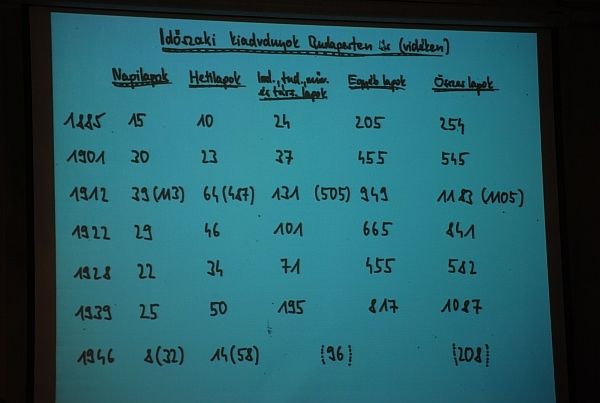 Időszaki kiadványok Budapesten és (vidéken)
Napilapok Hetilapok Irod., tud., műv. és társ. lapok Egyéb lapok Összes lapok
1885 15 10 24 205 254
1901 30 23 37 455 545
1912 39 (113) 64 (487) 131 (505) 949 1183 (1105)
1922 29 46 101 665 841
1928 22 34 71 455 582
1939 25 50 195 817 1087
1946 8 (32) 14 (58) (96) (208)